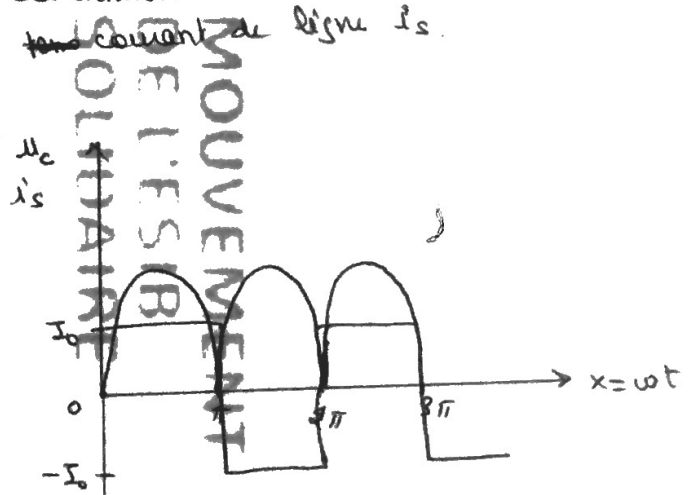 courant de ligne is.
MOUVEMENT
DE L'ESIR
SOLIDAIRE
uc
is
I₀
0
π
2π
3π
x=ωt
-I₀